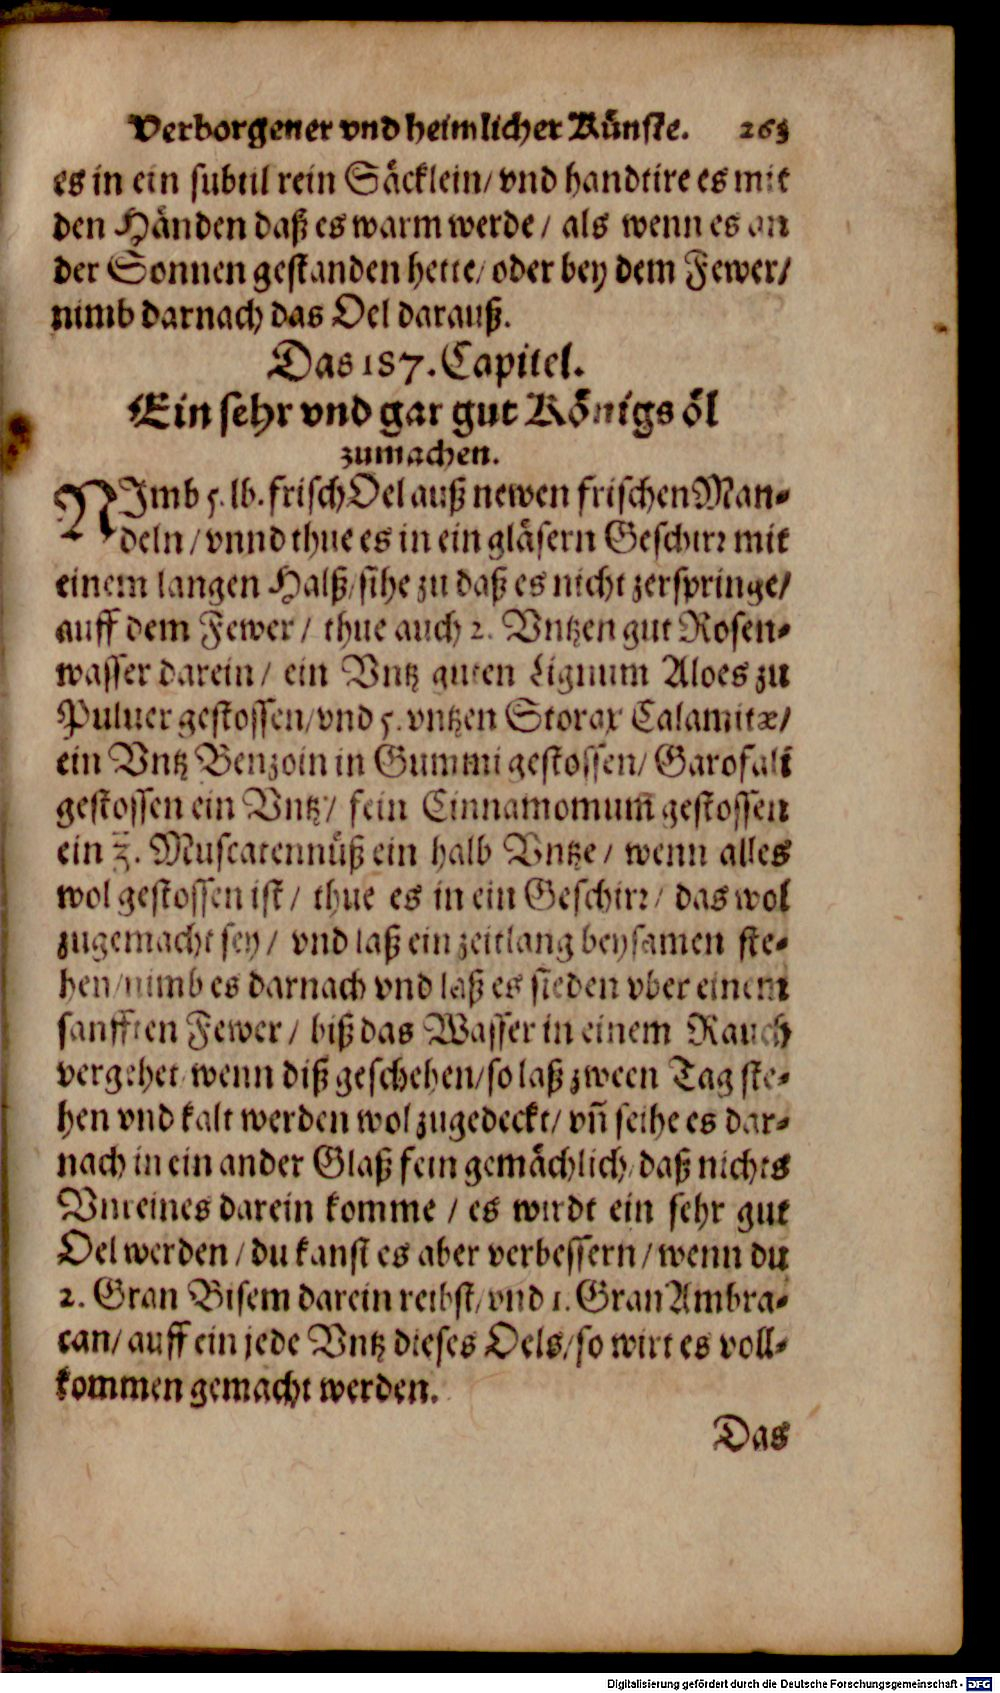 Verborgener vnd heimlicher Künste. 263
es in ein subtil rein Säcklein/ vnd handtire es mit
den Händen daß es warm werde/ als wenn es an
der Sonnen gestanden hette/ oder bey dem Fewer/
nimb darnach das Oel darauß.
Das 187. Capitel.
Ein sehr vnd gar gut Königs öl
zumachen.
NImb 5. lb. frisch Oel auß newen frischen Man-
deln/ vnnd thue es in ein gläsern Geschirr mit
einem langen Halß/ sihe zu daß es nicht zerspringe/
auff dem Fewer/ thue auch 2. Vntzen gut Rosen-
wasser darein/ ein Vntz guten Lignum Aloes zu
Puluer gestossen/ vnd 5. vntzen Storax Calamitæ/
ein Vntz Benzoin in Gummi gestossen/ Garofali
gestossen ein Vntz/ fein Cinnamomum̃ gestossen
ein ℥. Muscatennüß ein halb Vntze/ wenn alles
wol gestossen ist/ thue es in ein Geschirr/ das wol
zugemacht sey/ vnd laß ein zeitlang beysamen ste-
hen/ nimb es darnach vnd laß es sieden vber einem
sanfften Fewer/ biß das Wasser in einem Rauch
vergehet/ wenn diß geschehen/ so laß zween Tag ste-
hen vnd kalt werden wol zugedeckt/ vñ seihe es dar-
nach in ein ander Glaß fein gemächlich/ daß nichts
Vnreines darein komme/ es wirdt ein sehr gut
Oel werden/ du kanst es aber verbessern/ wenn du
2. Gran Bisem darein reibst/ vnd 1. Gran Ambra-
can/ auff ein jede Vntz dieses Oels/ so wirt es voll-
kommen gemacht werden.
Das
Digitalisierung gefördert durch die Deutsche Forschungsgemeinschaft - DFG